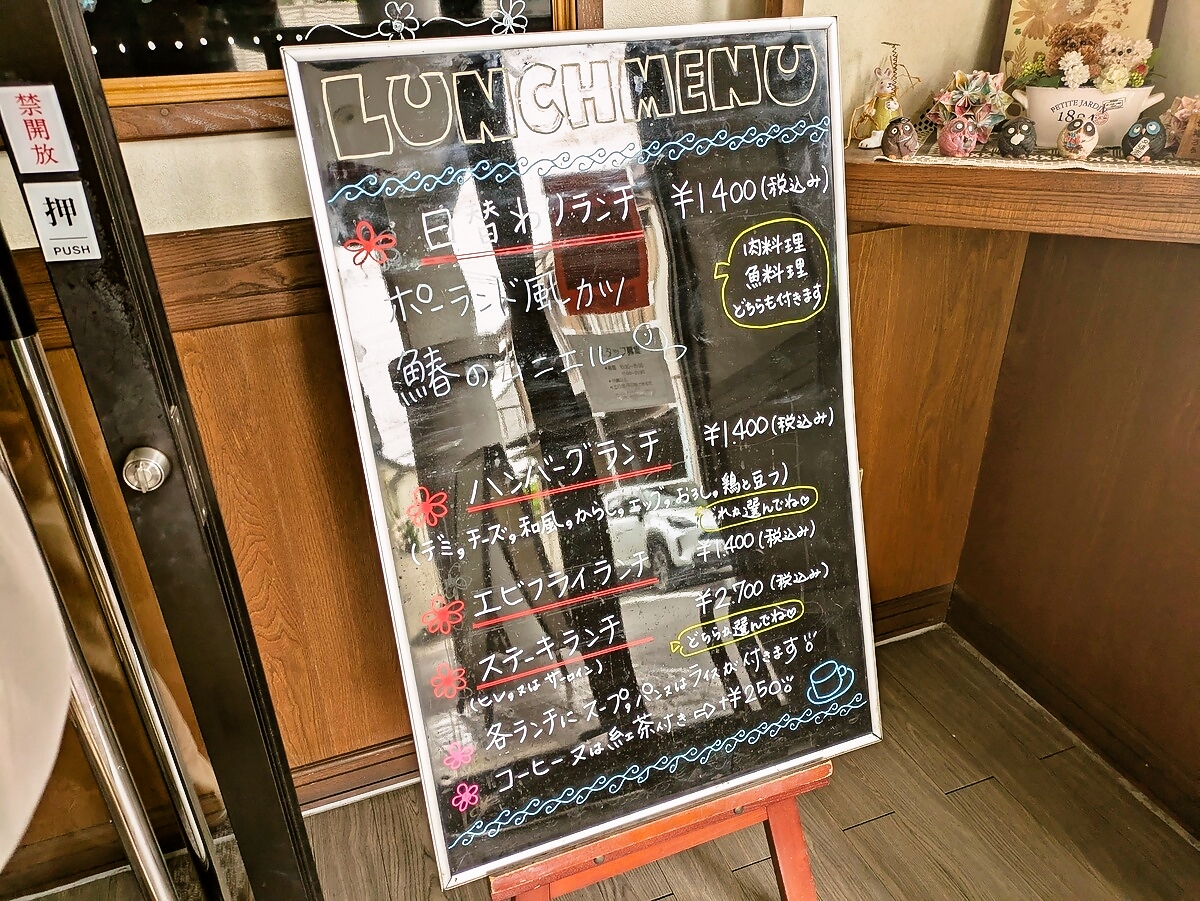 禁開放
押
PUSH
LUNCH MENU
日替わりランチ ¥1.400(税込み)
肉料理
魚料理
どちらも付きます
ポーランド風カツ
鰆のムニエル
ハンバーグランチ ¥1.400(税込み)
(デミ,チーズ,和風,からし,エッグ,おろし,鶏と豆フ)
どれか選んでね♡
エビフライランチ ¥1.400(税込み)
ステーキランチ ¥2.700(税込み)
(ヒレ,又は サーロイン)
どちらか選んでね♡
各ランチに スープ,パン又はライスが付きます
コーヒー又は紅茶付き⇨+¥250
PETITE JARDIN